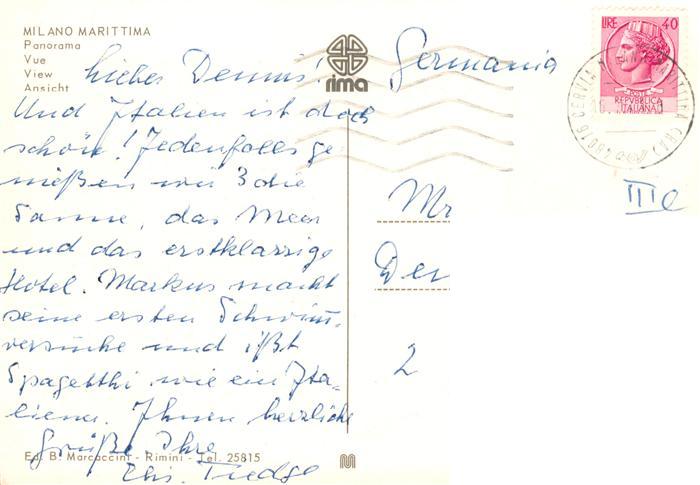 MILANO MARITTIMA
Panorama
Vue
View
Ansicht
rima
Germania
LIRE 40
POSTE
REPVBBLICA
ITALIANA
48016 CERVIA
IIIe
Lieber Dennis!
Und Italien ist doch
schön! Jedenfalls ge-
nießen wir 3 die
Sonne, das Meer
und das erstklassige
Hotel. Markus macht
seine ersten Schwimm-
versuche und ißt
Spagetthi wie ein Ita-
liener. Ihnen herzliche
Grüße, Ihre
Tiedge
Mr
Der
2
Ed. B. Marcaccini - Rimini - Tel. 25815